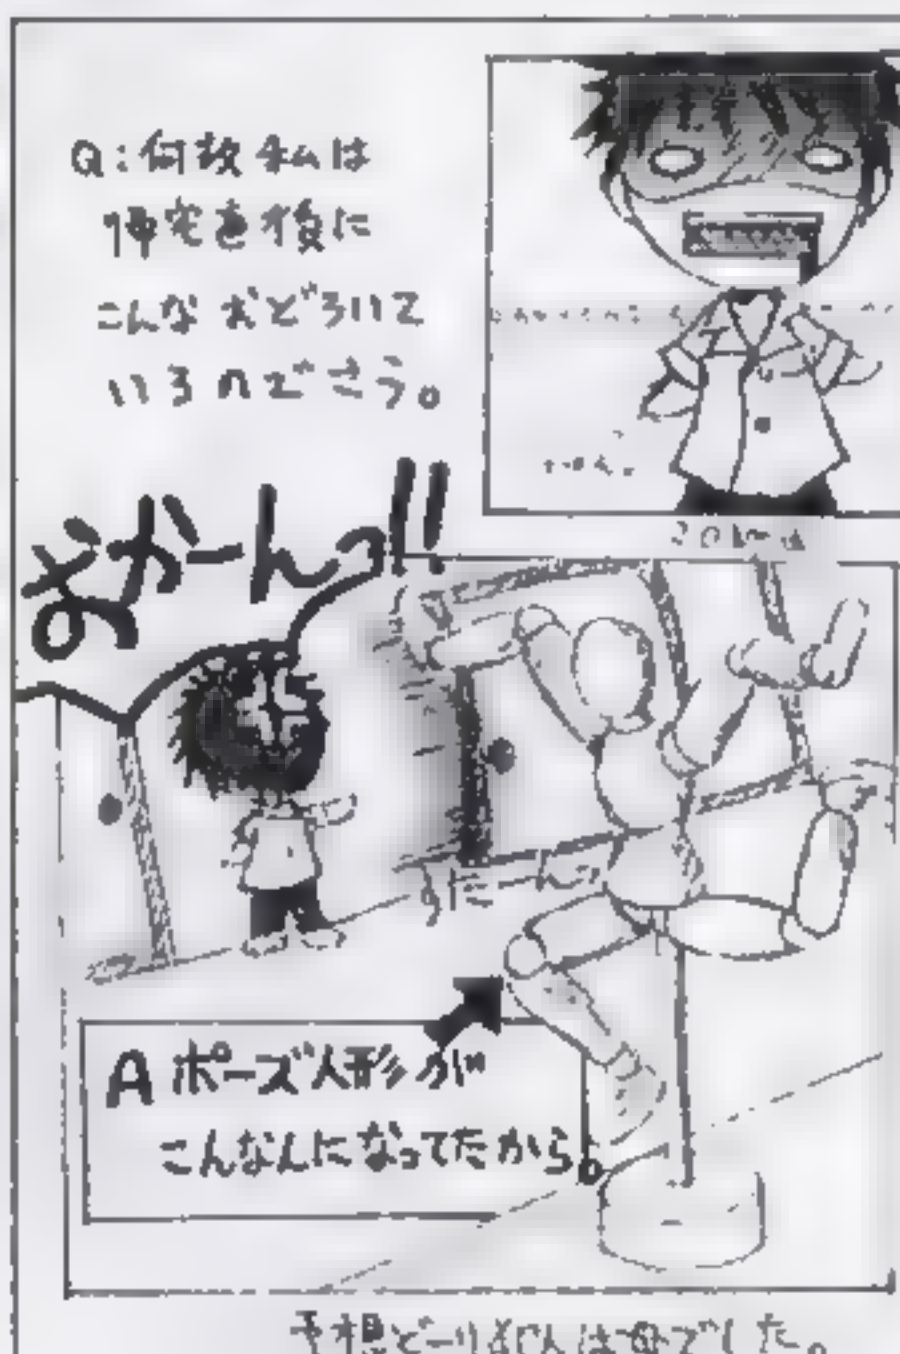 Q:何故私は
帰宅直後に
こんなおどろいて
いるのでせう。
おかーんっ!!
すたーん
A ポーズ人形が
こんなんになってたから。
予想どーり犯人は母でした。